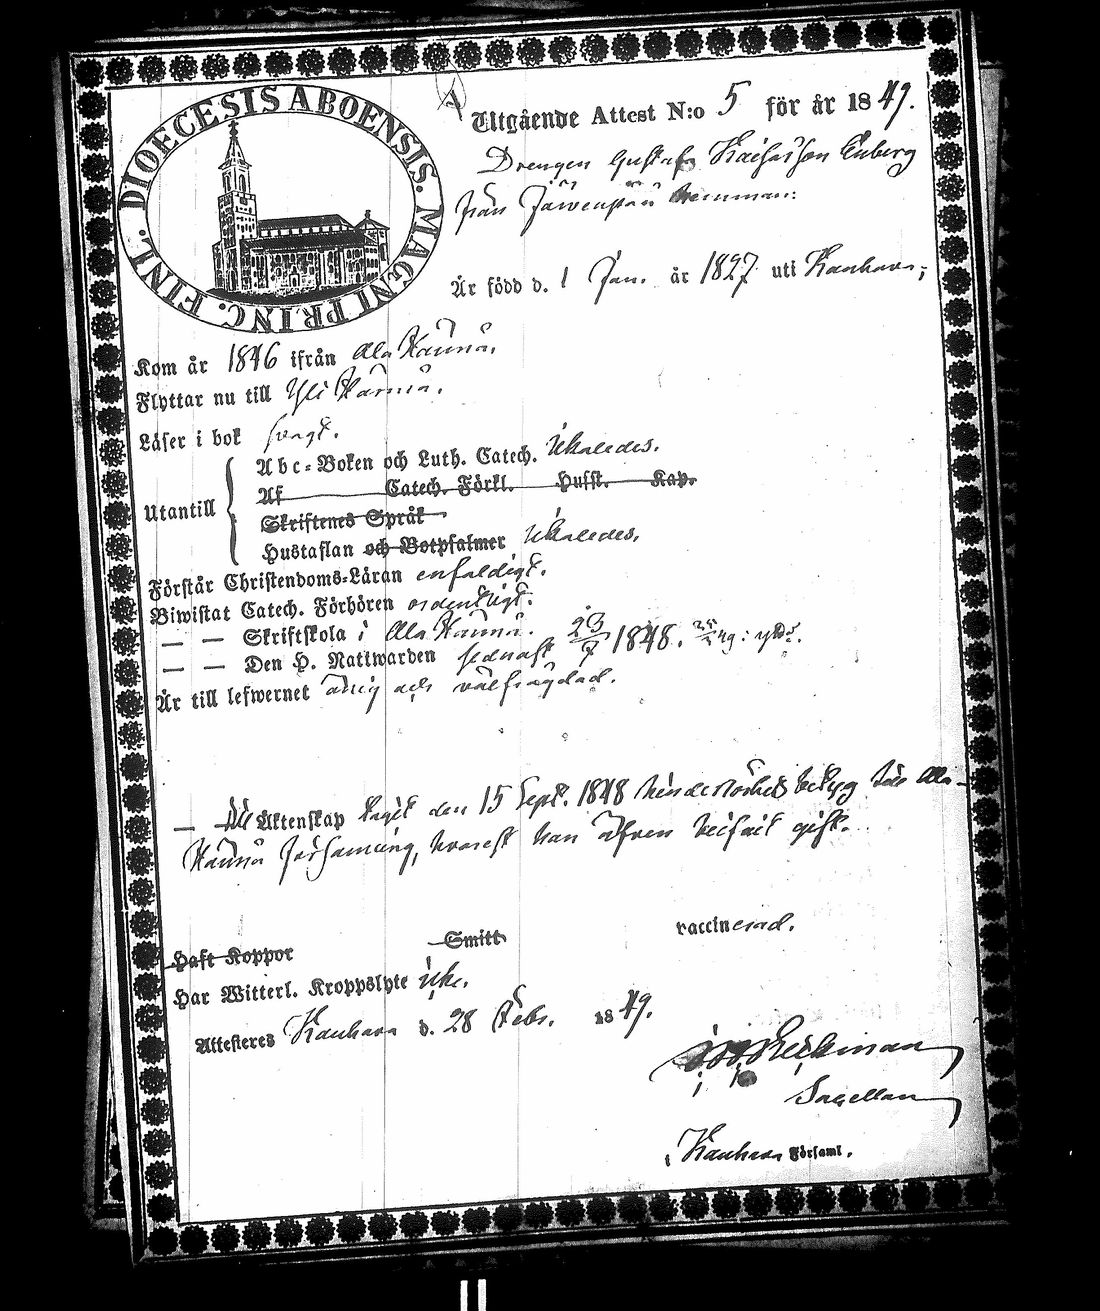 DIOECESIS ABOENSIS. MAGNI PRINC. FINL.
Utgående Attest N:o 5 för år 1849.
Drengen Gustaf Enberg
från hemman:
Är född d. 1 Jan. år 1827 uti Kauhava;
Kom år 1846 ifrån Ala Härmä.
Flyttar nu till Yli Härmä.
Läser i bok svagt.
Utantill
Abc-Boken och Luth. Catech. Ukaledes.
Af Catech. Förkl. Husst. Kap.
Skriftenes Språk
Hustaflan och Botpsalmer Ukaledes.
Förstår Christendoms-Läran enfaldigt.
Biwistat Catech. Förhören ordentligt.
— — Skriftskola i Ala Härmä.
— — Den H. Nattwarden sednast 23/7 1848.
Är till lefwernet ärlig och välfrägdad.
— Äktenskap tagit den 15 Sept. 1848 hinderslöshets betyg till Ala-
Härmä församling, hvarest han äfven blifvit gift.
Haft Koppor Smitt vaccinerad.
Har Witterl. Kroppslyte icke.
Attesteres Kauhava d. 28 Febr. 1849.
Sacellan
i Kauhava Församl.